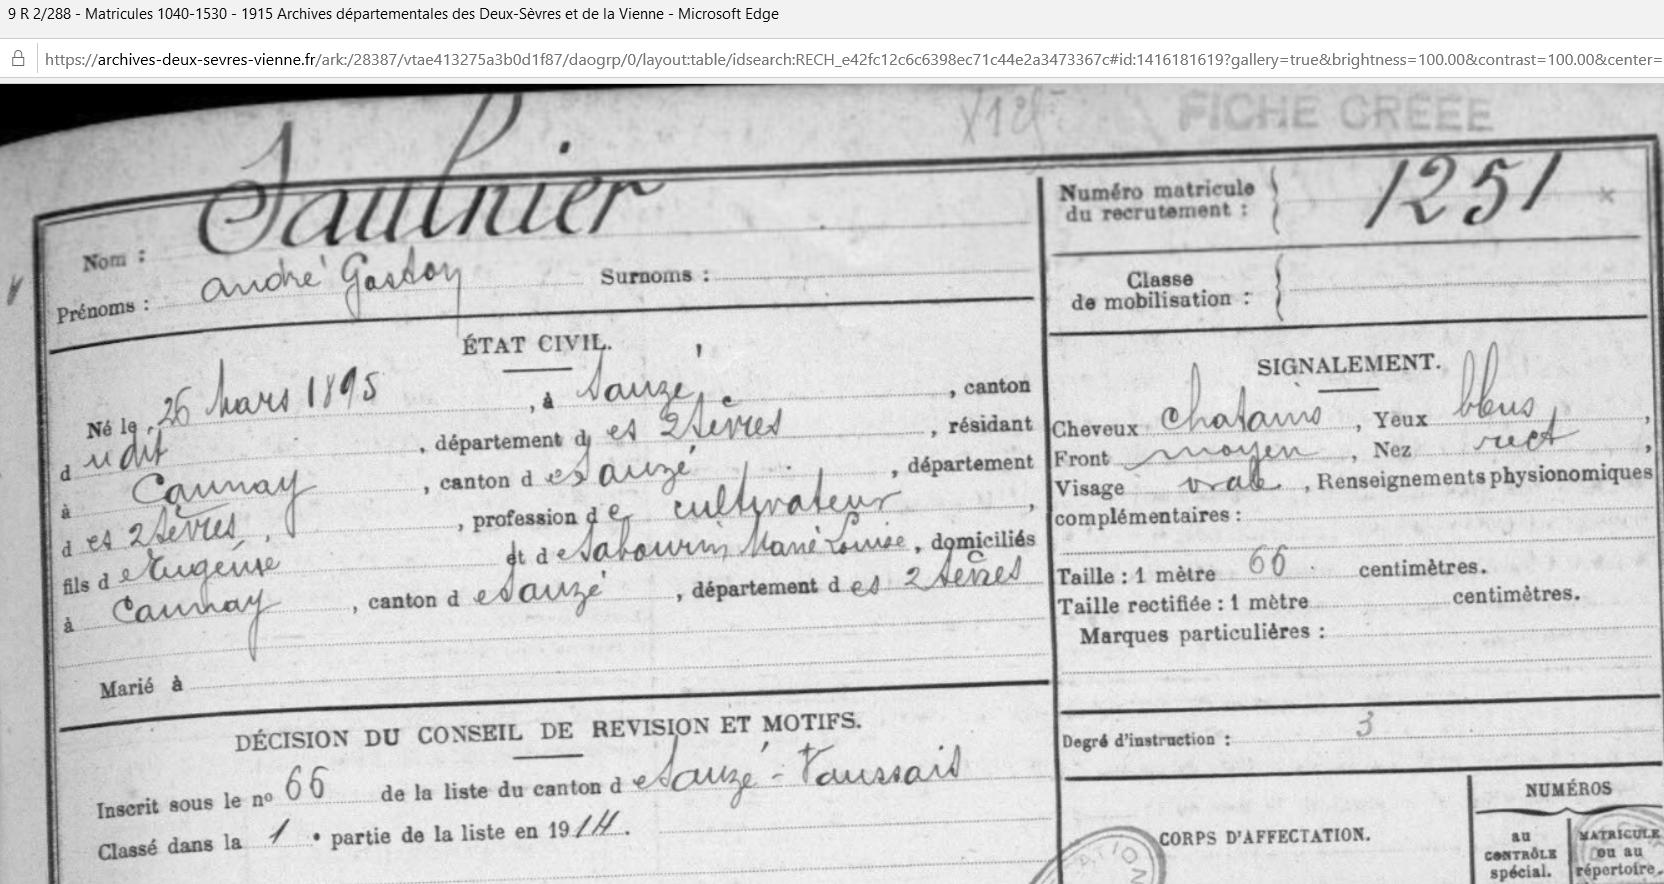 9 R 2/288 - Matricules 1040-1530 - 1915 Archives départementales des Deux-Sèvres et de la Vienne - Microsoft Edge
https://archives-deux-sevres-vienne.fr/ark:/28387/vtae413275a3b0d1f87/daogrp/0/layout:table/idsearch:RECH_e42fc12c6c6398ec71c44e2a3473367c#id:1416181619?gallery=true&brightness=100.00&contrast=100.00&center=
FICHE CREEE
Nom : Saulnier
Prénoms : andré Gaston Surnoms :
Numéro matricule du recrutement : 1251
Classe de mobilisation :
ÉTAT CIVIL.
Né le 26 Mars 1895, à Sauzé, canton
d udit, département d es 2 Sèvres, résidant
à Caunay, canton d e Sauzé, département
d es 2 Sèvres, profession d e cultivateur,
fils d e Eugénie et d e Sabourin Marie Louise, domiciliés
à Caunay, canton d e Sauzé, département d es 2 Sèvres
Marié à
SIGNALEMENT.
Cheveux chatains, Yeux bleus,
Front moyen, Nez rect,
Visage ovale, Renseignements physionomiques
complémentaires :
Taille : 1 mètre 66 centimètres.
Taille rectifiée : 1 mètre centimètres.
Marques particulières :
Degré d'instruction : 3
DÉCISION DU CONSEIL DE REVISION ET MOTIFS.
Inscrit sous le nº 66 de la liste du canton d e Sauzé-Vaussais
Classé dans la 1 e partie de la liste en 1914.
CORPS D'AFFECTATION.
NUMÉROS
au CONTRÔLE spécial.
MATRICULE ou au répertoire.